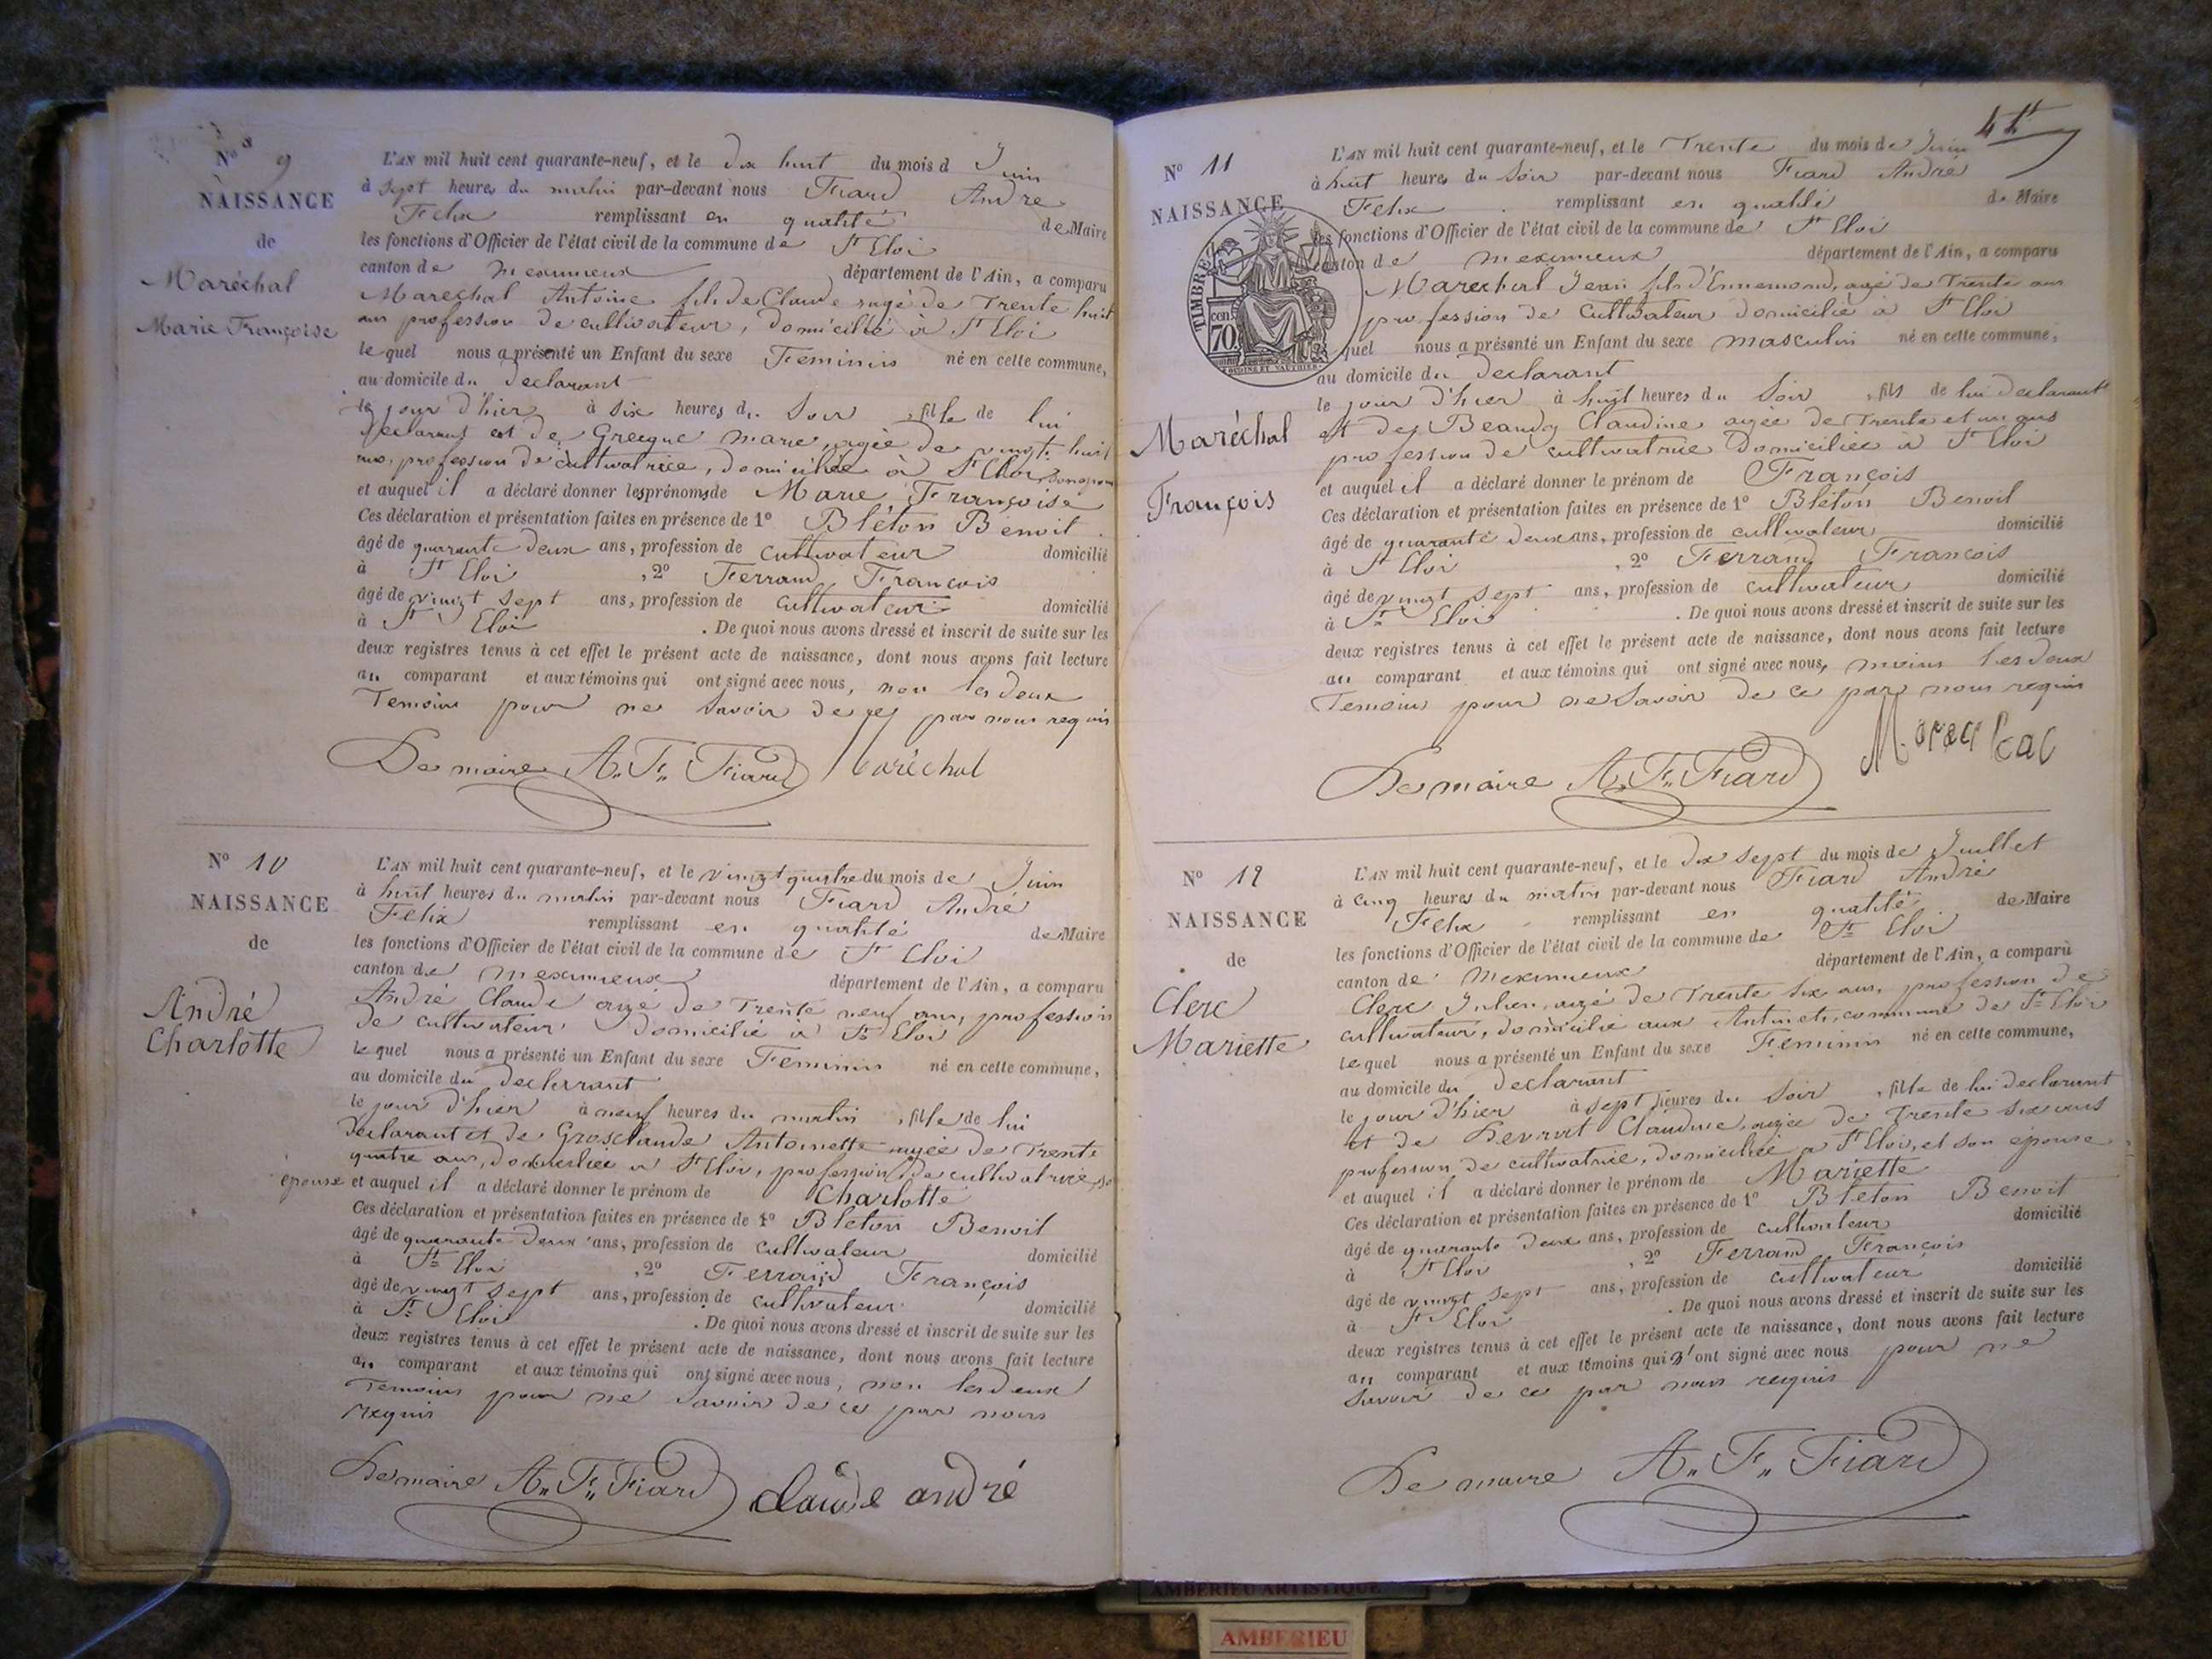 Nº 9
NAISSANCE
de
Maréchal
Marie Françoise
L'AN mil huit cent quarante-neuf, et le dix huit du mois d Juin
à sept heures du matin par-devant nous Fiard André
Felix remplissant en qualité de Maire
les fonctions d'Officier de l'état civil de la commune de St Eloi
canton de meximieux département de l'Ain, a comparu
Marechal Antoine fils de Claude agé de Trente huit
ans profession de cultivateur, domicilié à St Eloi
lequel nous a présenté un Enfant du sexe Feminin né en cette commune,
au domicile du declarant
le jour d'hier à six heures du Soir , fille de lui
declarant et de Grecque marie agée de vingt huit
ans, profession de cultivatrice, domiciliée à St Eloi
et auquel il a déclaré donner les prénoms de Marie Françoise
Ces déclaration et présentation faites en présence de 1º Bléton Benoit
âgé de quarante deux ans, profession de cultivateur domicilié
à St Eloi , 2º Ferrand François
âgé de vingt sept ans, profession de cultivateur domicilié
à St Eloi . De quoi nous avons dressé et inscrit de suite sur les
deux registres tenus à cet effet le présent acte de naissance, dont nous avons fait lecture
au comparant et aux témoins qui ont signé avec nous, non les deux
Temoins pour ne savoir de ce par nous requis
Le maire A. F. Fiard Maréchal
Nº 10
NAISSANCE
de
André
Charlotte
L'AN mil huit cent quarante-neuf, et le vingt quatre du mois de Juin
à huit heures du matin par-devant nous Fiard André
Felix remplissant en qualité de Maire
les fonctions d'Officier de l'état civil de la commune de St Eloi
canton de meximieux département de l'Ain, a comparu
André Claude agé de Trente neuf ans, profession
de cultivateur domicilié à St Eloi
lequel nous a présenté un Enfant du sexe Feminin né en cette commune,
au domicile du declarant
le jour d'hier à neuf heures du matin , fille de lui
declarant et de Grosclaude Antoinette agée de Trente
quatre ans, domiciliée à St Eloi, profession de cultivatrice, so
epouse et auquel il a déclaré donner le prénom de Charlotte
Ces déclaration et présentation faites en présence de 1º Bleton Benoit
âgé de quarante deux ans, profession de cultivateur domicilié
à St Eloi , 2º Ferrand François
âgé de vingt sept ans, profession de cultivateur domicilié
à St Eloi . De quoi nous avons dressé et inscrit de suite sur les
deux registres tenus à cet effet le présent acte de naissance, dont nous avons fait lecture
au comparant et aux témoins qui ont signé avec nous, non les deux
Temoins pour ne savoir de ce par nous
requis
Le maire A. F. Fiard claude andré
Nº 11
NAISSANCE
TIMBRE
cen
70
Maréchal
François
L'AN mil huit cent quarante-neuf, et le Trente du mois de Juin
à huit heures du Soir par-devant nous Fiard André
Felix remplissant en qualité de Maire
les fonctions d'Officier de l'état civil de la commune de St Eloi
canton de meximieux département de l'Ain, a comparu
Marechal Jean fils d'Ennemond, agé de Trente ans
profession de Cultivateur domicilié à St Eloi
lequel nous a présenté un Enfant du sexe masculin né en cette commune,
au domicile du declarant
le jour d'hier à huit heures du Soir , fils de lui declarant
et de Beandy Claudine agée de Trente et un ans
profession de cultivatrice Domiciliée à St Eloi
et auquel il a déclaré donner le prénom de François
Ces déclaration et présentation faites en présence de 1º Bléton Benoit
âgé de quarante deux ans, profession de cultivateur domicilié
à St Eloi , 2º Ferrand François
âgé de vingt sept ans, profession de cultivateur domicilié
à St Eloi . De quoi nous avons dressé et inscrit de suite sur les
deux registres tenus à cet effet le présent acte de naissance, dont nous avons fait lecture
au comparant et aux témoins qui ont signé avec nous, moins les deux
Temoins pour ne Savoir de ce par nous requis
Le maire A. F. Fiard
Nº 12
NAISSANCE
de
Clerc
Mariette
L'AN mil huit cent quarante-neuf, et le dix sept du mois de Juillet
à cinq heures du matin par-devant nous Fiard André
Felix remplissant en qualité de Maire
les fonctions d'Officier de l'état civil de la commune de St Eloi
canton de meximieux département de l'Ain, a comparu
Clerc Julien, agé de Trente six ans, profession de
cultivateur, domicilié aux commune de St Eloi
lequel nous a présenté un Enfant du sexe Feminin né en cette commune,
au domicile du declarant
le jour d'hier à sept heures du Soir , fille de lui declarant
et de Claudine, agée de Trente six ans
profession de cultivatrice, domiciliée à St Eloi, et son épouse
et auquel il a déclaré donner le prénom de Mariette
Ces déclaration et présentation faites en présence de 1º Bleton Benoit
âgé de quarante deux ans, profession de cultivateur domicilié
à St Eloi , 2º Ferrand François
âgé de vingt sept ans, profession de cultivateur domicilié
à St Eloi . De quoi nous avons dressé et inscrit de suite sur les
deux registres tenus à cet effet le présent acte de naissance, dont nous avons fait lecture
au comparant et aux témoins qui n'ont signé avec nous pour ne
savoir de ce par nous requis
Le maire A. F. Fiard
AMBERIEU ARTISTIQUE
AMBERIEU